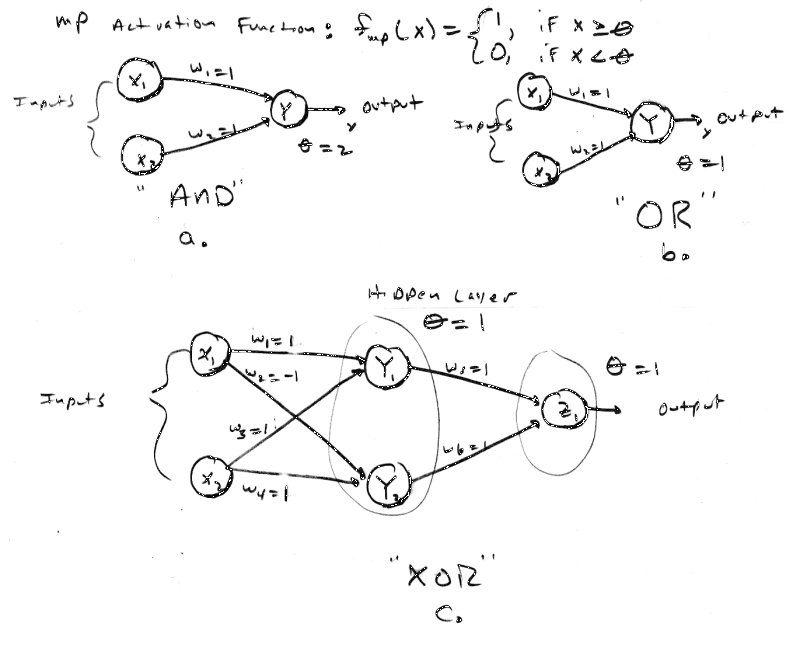 MP Activation Function: fmp(x) = { 1, if x ≥ θ
0, if x < θ
Inputs
x1
w1=1
x2
w2=1
Y
y
output
θ=2
"AND"
a.
Inputs
x1
w1=1
x2
w2=1
Y
y
output
θ=1
"OR"
b.
Hidden Layer
θ=1
Inputs
x1
w1=1
w2=-1
x2
w3=1
w4=1
Y1
Y2
w5=1
w6=1
Z1
θ=1
output
"XOR"
c.